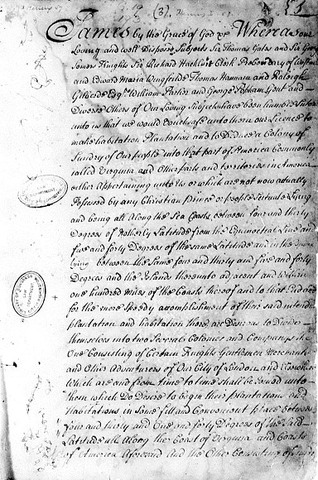 (3)
James by the Grace of God &c Whereas our
Loving and well Disposed Subjects Sir Thomas Gates and Sir George
Somers Knights Sir Richard Hackluit Clerk Prebendary of
and Edward Maria Wingfield Thomas Hannam and Raleigh
Gilberde Esqrs William Parker and George Popham Gent and
Divers Others of Our Loving Subjects have been humble Suitors
unto us that we would vouchsafe unto them our Licence to
make habitation Plantation and to Deduce a Colony of
Sundry of Our people into that part of America Commonly
called Virginia and Other parts and territories in America
either Appertaining unto us or which are not now actually
possessed by any Christian Prince or people Scituate Lying
and being all Along the Sea Coasts between four and thirty
Degrees of Northerly Latitude from the Equinoctial Line and
five and forty Degrees of the same Latitude and in the
lying between the Same four and thirty and five and forty
Degrees and the Islands thereunto adjacent and within
one hundred miles of the Coasts thereof and to that End and
for the more Speedy accomplishment of their said intended
plantation and habitation there are Desirous to Divide
themselves into two Several Colonies and Companys the
One Consisting of Certain Knights Gentlemen Merchants
and Other Adventurers of Our City of London and Elsewhere
which are and from time to time shall be Joined unto
them which do Desire to begin their plantation and
Habitations in Some fitt and Convenient place between
four and thirty and One and forty Degrees of the Said
Latitude all Along the Coast of Virginia and Coasts
of America Aforesaid And the Other Consisting of